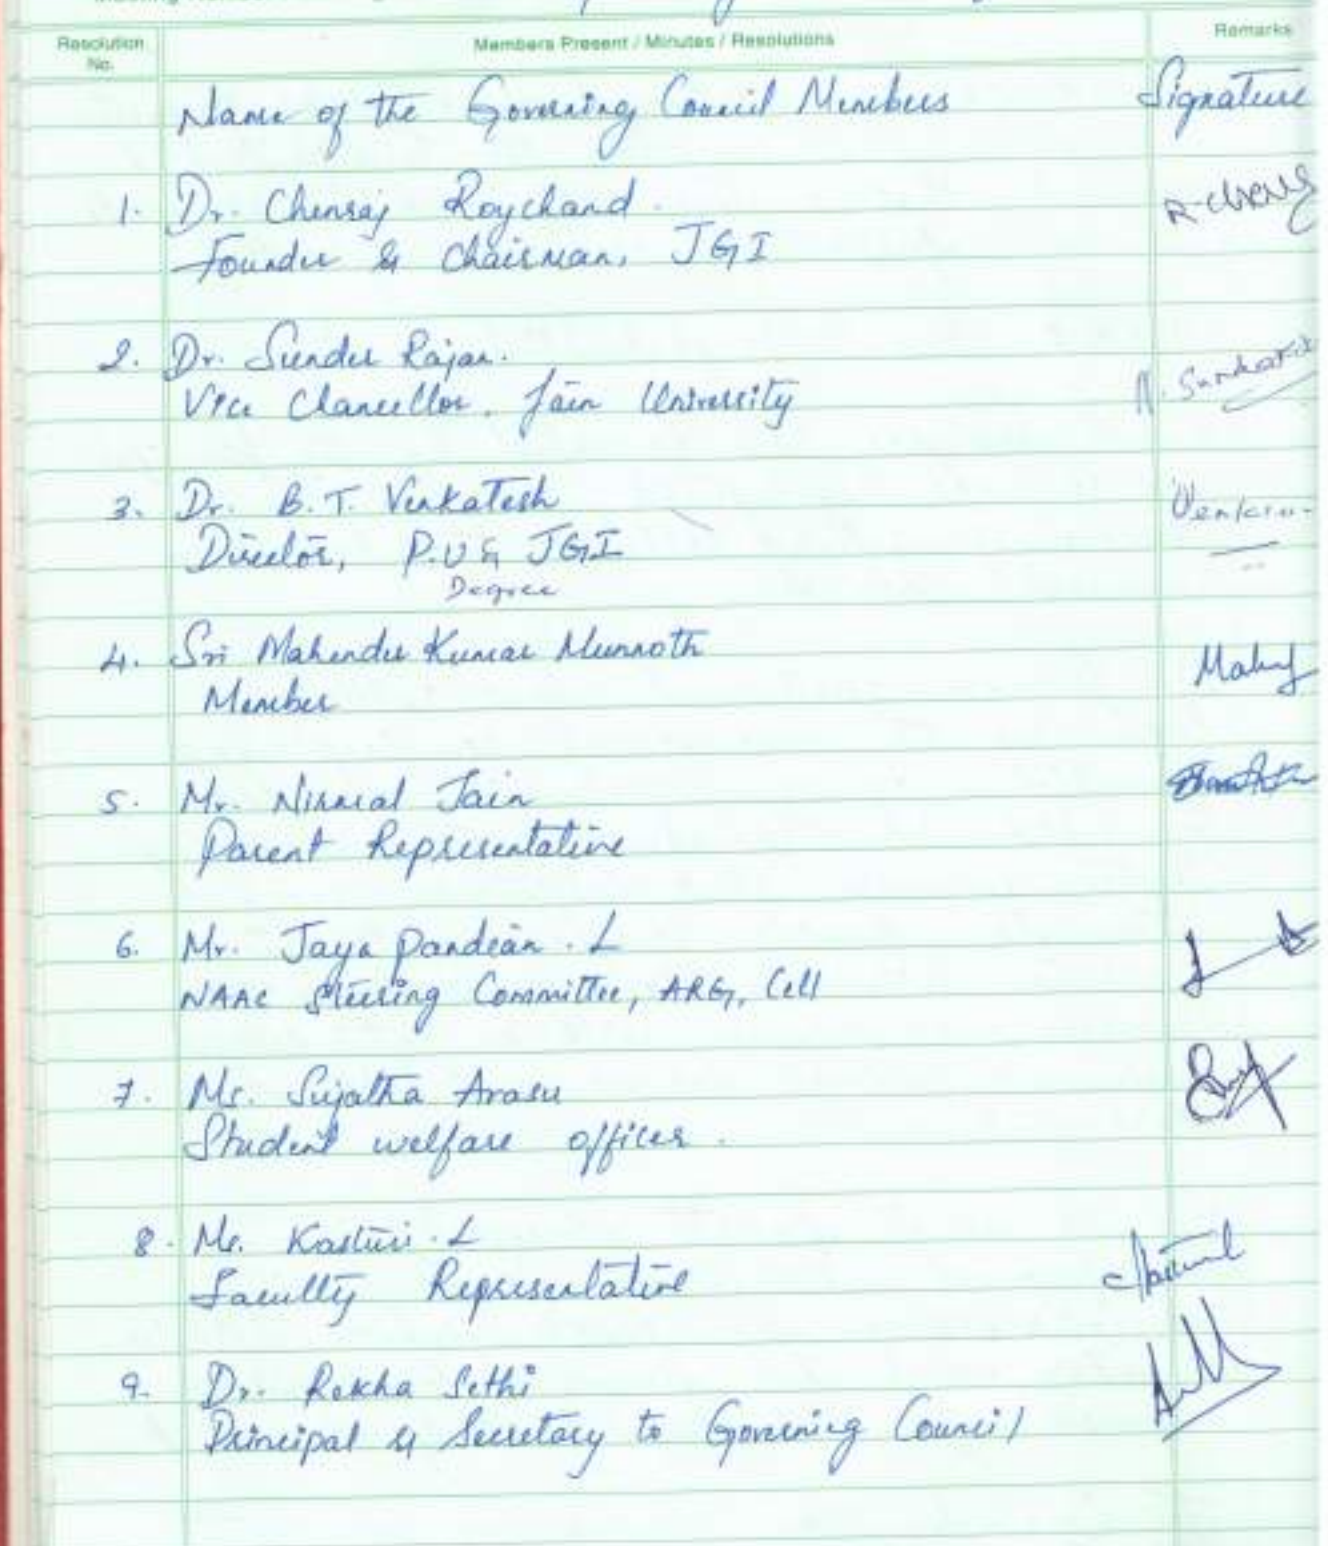 Resolution No.
Members Present / Minutes / Resolutions
Remarks
Name of the Governing Council Members
Signature
1. Dr. Chenraj Roychand.
Founder & Chairman, JGI
2. Dr. Sunder Rajan.
Vice Chancellor, Jain University
3. Dr. B.T. Venkatesh
Director, P.U & JGI
Degree
4. Sri Mahender Kumar Munnoth
Member
5. Mr. Nirmal Jain
Parent Representative
6. Mr. Jaya pandian. L
NAAC Steering Committee, ARG, Cell
7. Ms. Sujatha Arasu
Student welfare officer.
8. Ms. Kasturi. L
Faculty Representative
9. Dr. Rekha Sethi
Principal & Secretary to Governing Council